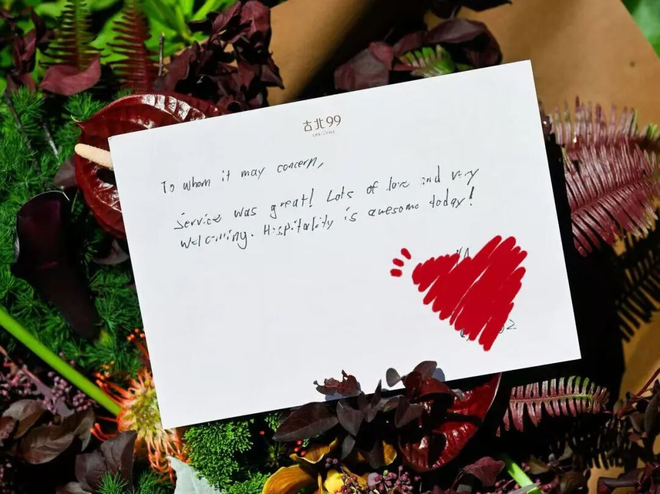 古北99
To whom it may concern,
Service was great! Lots of love and very
welcoming. Hospitality is awesome today!